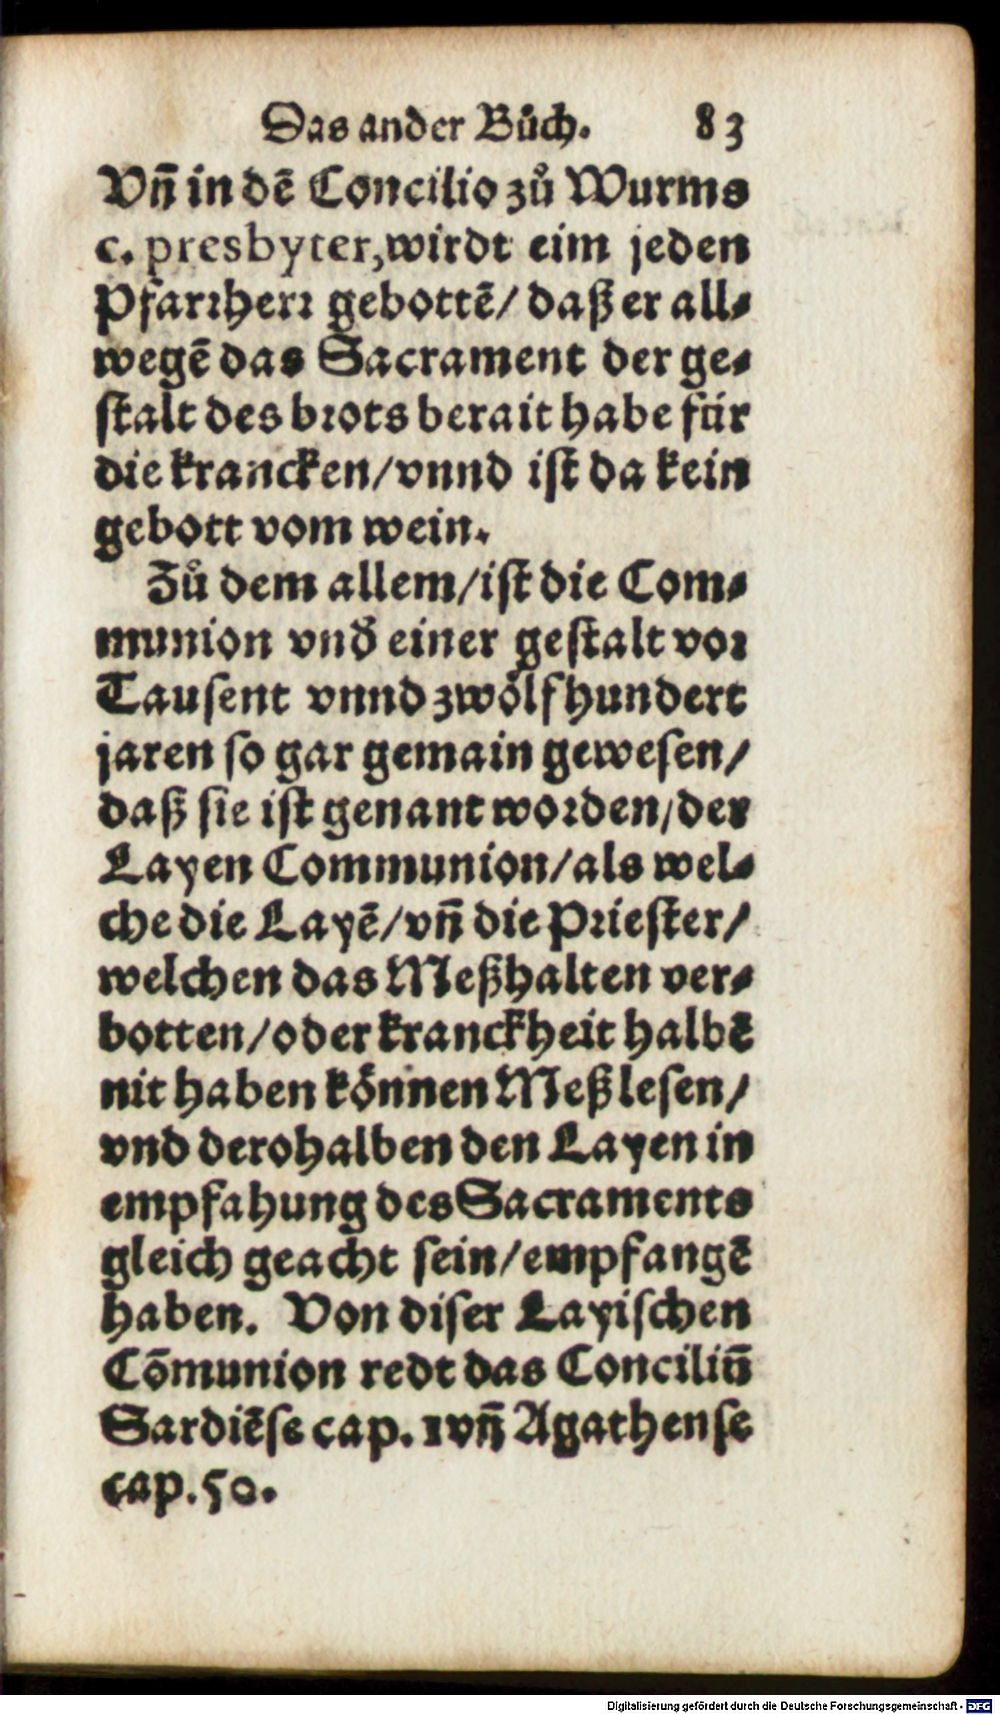 Das ander Bůch. 83
Vñ in dē Concilio zů Wurms
c. presbyter, wirdt eim jeden
Pfarrherr gebottē/ daß er all-
wegē das Sacrament der ge-
stalt des brots berait habe für
die krancken/ vnnd ist da kein
gebott vom wein.
Zů dem allem/ ist die Com-
munion vnd̄ einer gestalt vor
Tausent vnnd zwölfhundert
jaren so gar gemain gewesen/
daß sie ist genant worden/ der
Layen Communion/ als wel-
che die Layē/ vñ die Priester/
welchen das Meßhalten ver-
botten/ oder kranckheit halbē
nit haben können Meß lesen/
vnd derohalben den Layen in
empfahung des Sacraments
gleich geacht sein/ empfangē
haben. Von diser Layischen
Cōmunion redt das Conciliū
Sardiēse cap. 1 vñ Agathense
cap. 50.
Digitalisierung gefördert durch die Deutsche Forschungsgemeinschaft - DFG